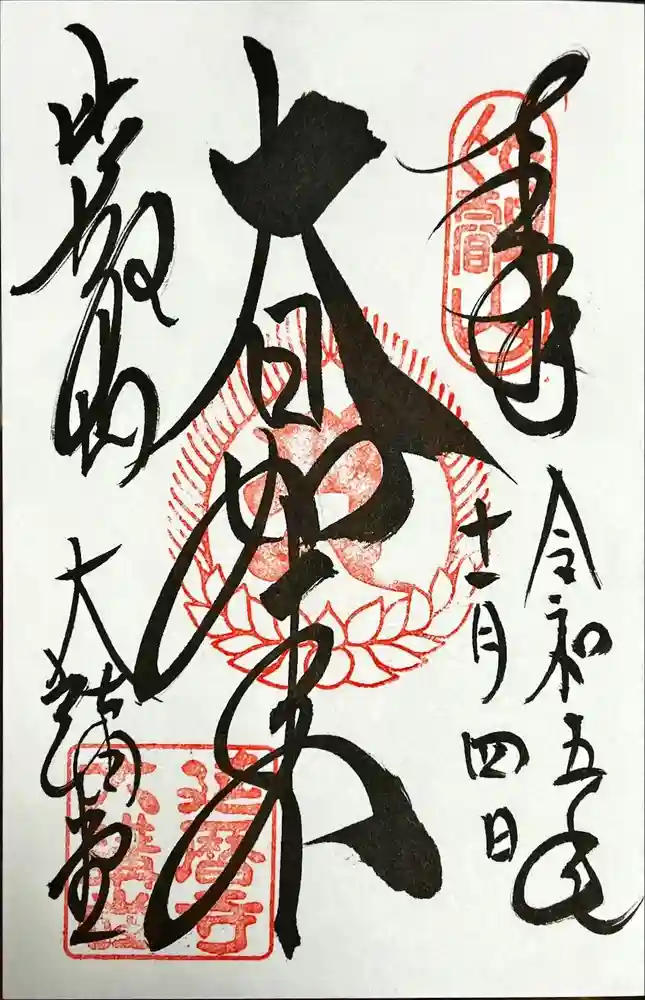 奉拝
令和五年
十一月四日
大日如来
比叡山
大講堂
延暦寺